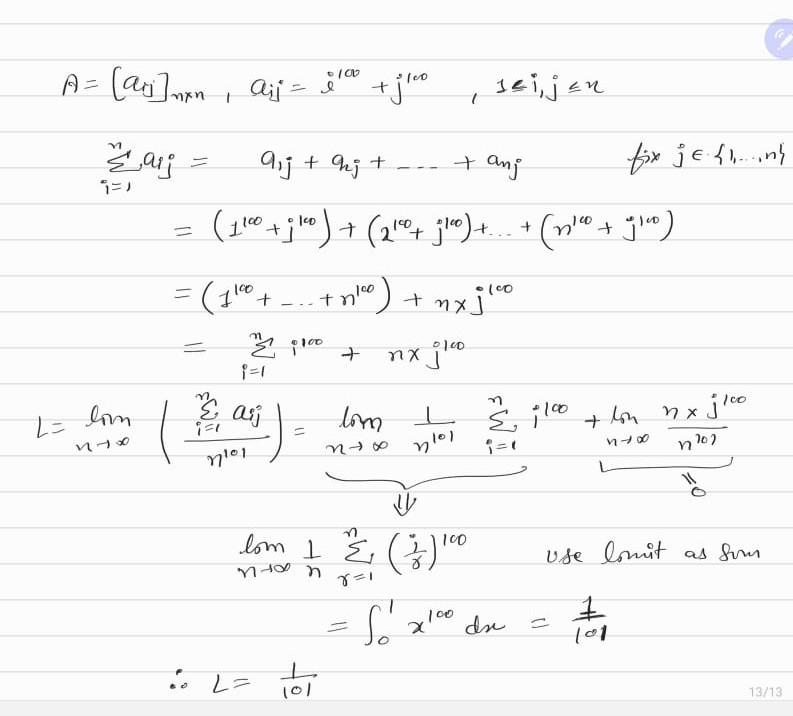 A = [aij]n×n , aij = i^100 + j^100 , 1 ≤ i, j ≤ n
∑_{i=1}^{n} aij = a1j + a2j + ---- + anj fix j ∈ {1,...,n}
= (1^100 + j^100) + (2^100 + j^100) + ... + (n^100 + j^100)
= (1^100 + ---- + n^100) + n × j^100
= ∑_{i=1}^{n} i^100 + n × j^100
L = lim_{n→∞} ( ∑_{i=1}^{n} aij / n^101 ) = lim_{n→∞} 1/n^101 ∑_{i=1}^{n} i^100 + lim_{n→∞} n × j^100 / n^101
⇓ = 0
lim_{n→∞} 1/n ∑_{r=1}^{n} (i/r)^100 use limit as sum
= ∫_0^1 x^100 dx = 1/101
∴ L = 1/101
13/13